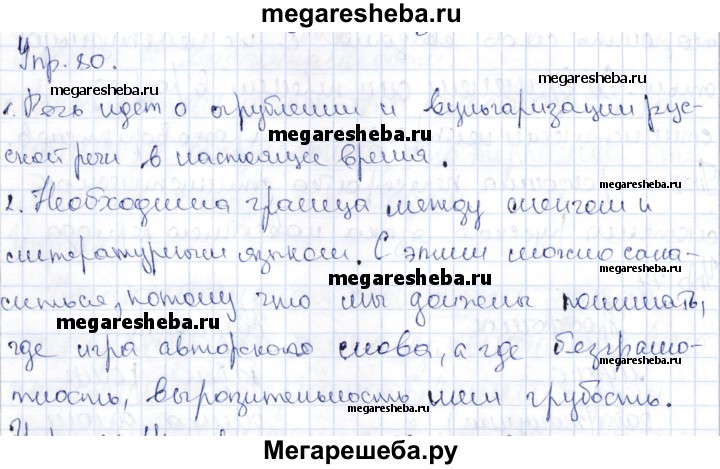 megaresheba.ru
Упр. 80.
megaresheba.ru
megaresheba.ru
1. Речь идет о огрублении и вульгаризации рус-
megaresheba.ru
ской речи в настоящее время.
megaresheba.ru
2. Необходима граница между сленгом и
megaresheba.ru
литературным языком. С этим можно согла-
megaresheba.ru
megaresheba.ru
ситься, потому что мы должны понимать,
megaresheba.ru
где игра авторского слова, а где безграмо-
megaresheba.ru
тность, выразительность или грубость.
megaresheba.ru
Мегарешеба.ру